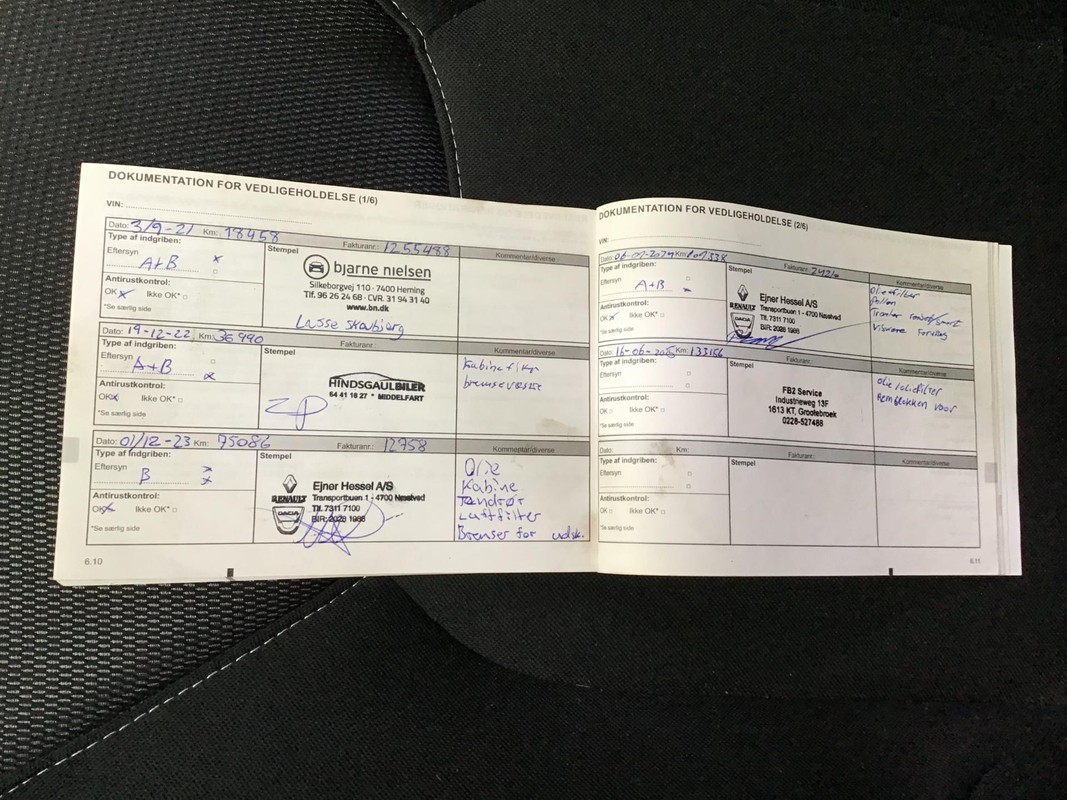 DOKUMENTATION FOR VEDLIGEHOLDELSE (1/6)
VIN:
Dato: 3/9-21 Km: 18458 Fakturanr.: 1255488 Kommentar/diverse
Type af indgriben:
Eftersyn
A+B
Antirustkontrol:
OK Ikke OK*
*Se særlig side
Stempel
bjarne nielsen
Silkeborgvej 110 · 7400 Herning
Tlf. 96 26 24 68 · CVR. 31 94 31 40
www.bn.dk
Lasse
Dato: 19-12-22 Km: 36990 Fakturanr.: Kommentar/diverse
Type af indgriben:
Eftersyn
A+B
Antirustkontrol:
OK Ikke OK*
*Se særlig side
Stempel
HINDSGAUL BILER
64 41 18 27 * MIDDELFART
bremsevæske
Dato: 01/12-23 Km: 75086 Fakturanr.: 12758 Kommentar/diverse
Type af indgriben:
Eftersyn
B
Antirustkontrol:
OK Ikke OK*
*Se særlig side
Stempel
RENAULT
DACIA
Ejner Hessel A/S
Transportbuen 1 - 4700 Næstved
Tlf. 7311 7100
BIR: 2028 1988
Olie
Kabine
Tændrør
Luftfilter
Bremser for udsk.
6.10
DOKUMENTATION FOR VEDLIGEHOLDELSE (2/6)
VIN:
Dato: Km: Fakturanr.: Kommentar/diverse
Type af indgriben:
Eftersyn
A+B
Antirustkontrol:
OK Ikke OK*
*Se særlig side
Stempel
RENAULT
DACIA
Ejner Hessel A/S
Transportbuen 1 - 4700 Næstved
Tlf. 7311 7100
BIR: 2028 1988
Oliefilter
Pollen
Dato: Km: 133156 Fakturanr.: Kommentar/diverse
Type af indgriben:
Eftersyn
Antirustkontrol:
OK Ikke OK*
*Se særlig side
Stempel
FB2 Service
Industrieweg 13F
1613 KT, Grootebroek
0228-527486
olie/oliefilter
Remblokken voor
Dato: Km: Fakturanr.: Kommentar/diverse
Type af indgriben:
Eftersyn
Antirustkontrol:
OK Ikke OK*
*Se særlig side
Stempel
6.11